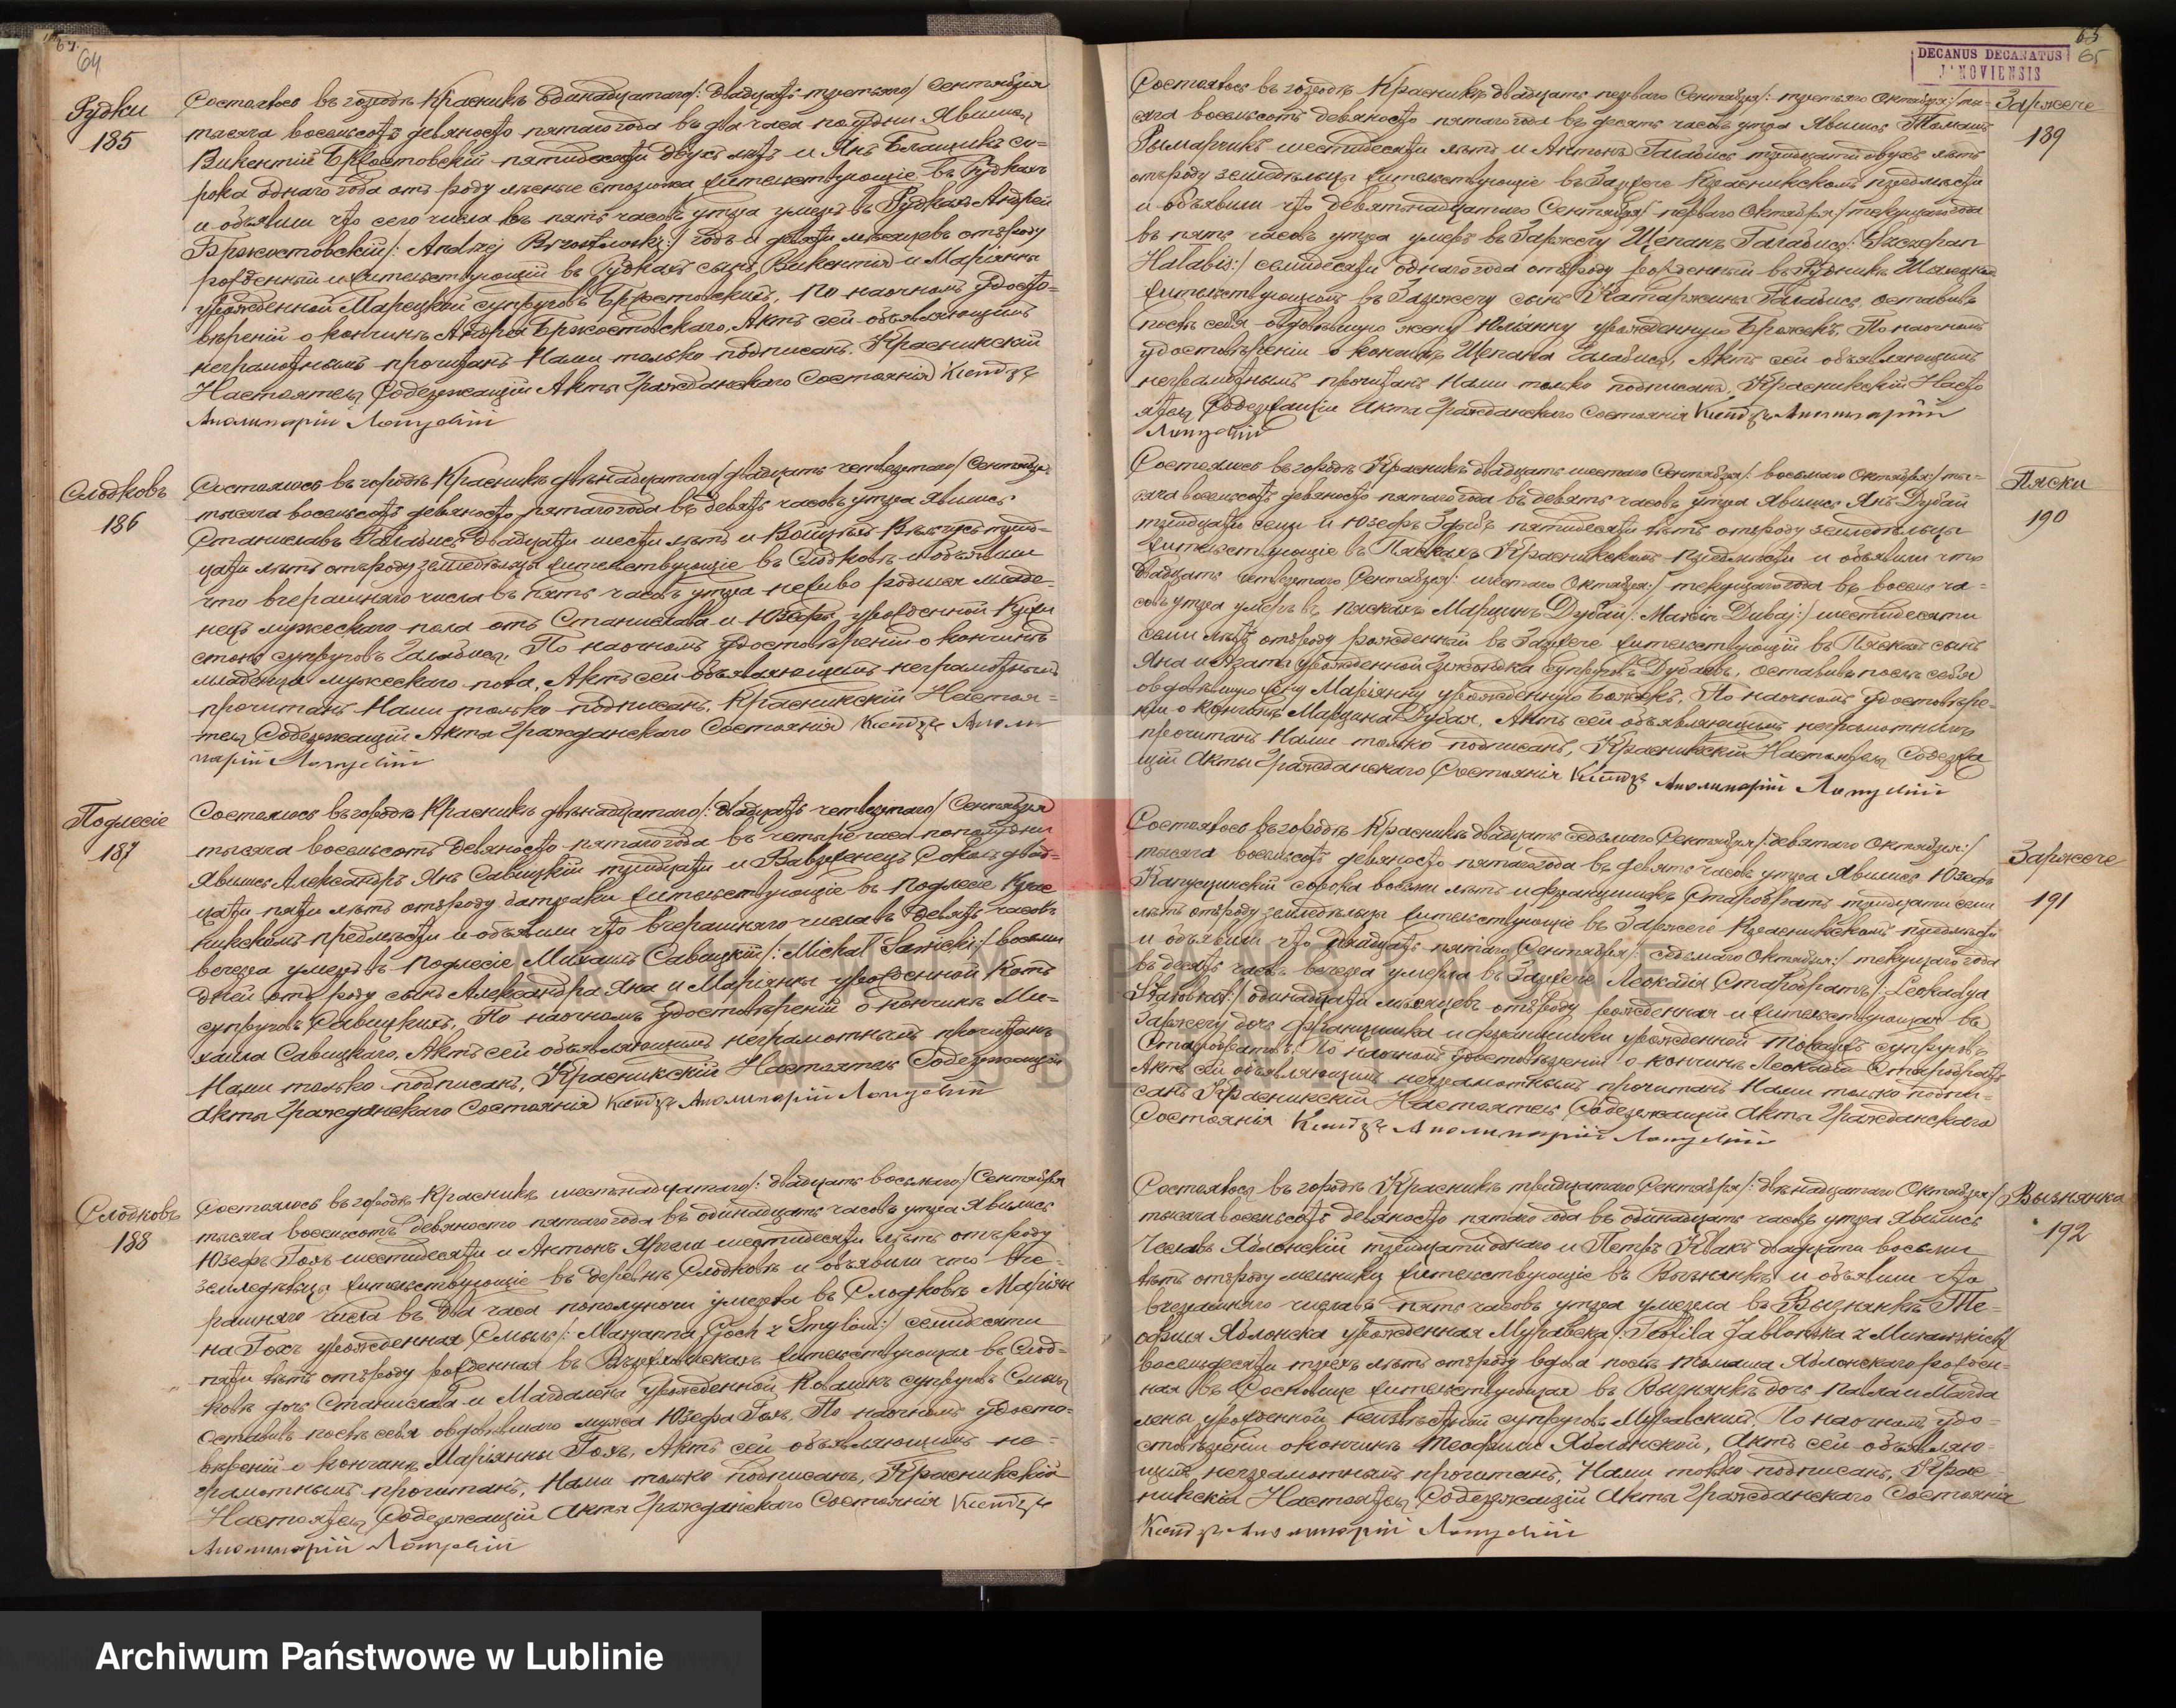 64
Рудки
185
Состоялось въ городѣ Красникѣ одинадцатаго /: двадцать третьяго / Сентября
тысяча восемьсотъ девяносто пятаго года въ два часа полудни. Явились
Викентій Бржостовскій пятидесяти двухъ лѣтъ и Янъ Блащикъ со-
рока одного года отъ роду лѣсные сторожа жительствующіе въ Рудкахъ
и объявили что сего числа въ пять часовъ утра умеръ въ Рудкахъ Андрей
Бржостовскій /: Andrzej Brzostowski :/ годъ и девять мѣсяцевъ отъ роду
рожденный и жительствующій въ Рудкахъ сынъ Викентія и Маріянны
урожденной Марецкой супруговъ Бржостовскихъ. По наочномъ удосто-
вѣреніи о кончинѣ Андрея Бржостовскаго, Актъ сей объявляющимъ
неграмотнымъ прочитанъ Нами только подписанъ. Красникскій
Настоятель Содержащій Акты Гражданскаго Состоянія Ксендзъ
Аполинарій
Слодковъ
186
Состоялось въ городѣ Красникѣ двѣнадцатаго / двадцать четвертаго / Сентября
тысяча восемьсотъ девяносто пятаго года въ девять часовъ утра Явились
Станиславъ Галабись двадцати шести лѣтъ и Войцѣхъ трид-
цати лѣтъ отъ роду земледѣльцы жительствующіе въ Слодковѣ и объявили
что вчерашняго числа въ пять часовъ утра неживо родился младе-
нецъ мужескаго пола отъ Станислава и Юзефы урожденной
супруговъ Галабись. По наочномъ удостовѣреніи о кончинѣ
младенца мужескаго пола, Актъ сей объявляющимъ неграмотнымъ
прочитанъ Нами только подписанъ. Красникскій Настоя-
тель Содержащій Акты Гражданскаго Состоянія Ксендзъ Аполи-
нарій
Подлесіе
187
Состоялось въ городѣ Красникѣ двѣнадцатаго /: двадцать четвертаго / Сентября
тысяча восемьсотъ девяносто пятаго года въ четыре часа пополудни
Явились Александръ Янъ Савицкій тридцати и Вавржинецъ Соколъ двад-
цати пяти лѣтъ отъ роду батраки жительствующіе въ Подлесіе Крас-
никскомъ предмѣстіи и объявили что вчерашняго числа въ девять часовъ
вечера умеръ въ Подлесіе Михаилъ Савицкій /: Michał Sawicki :/ восемь
дней отъ роду сынъ Александра Яна и Маріянны урожденной Котъ
супруговъ Савицкихъ. По наочномъ удостовѣреніи о кончинѣ Ми-
хаила Савицкаго, Актъ сей объявляющимъ неграмотнымъ прочитанъ
Нами только подписанъ. Красникскій Настоятель Содержащій
Акты Гражданскаго Состоянія Ксендзъ Аполинарій
Слодковъ
188
Состоялось въ городѣ Красникѣ шестнадцатаго /: двадцать восьмаго / Сентября
тысяча восемьсотъ девяносто пятаго года въ одинадцать часовъ утра Явились
Юзефъ Гохъ шестидесяти и Антонъ шестидесяти лѣтъ отъ роду
земледѣльцы жительствующіе въ деревнѣ Слодковѣ и объявили что вче-
рашняго числа въ два часа пополуночи умерла въ Слодковѣ Маріян-
на Гохъ урожденная Смыль /: Maryanna Goch z Smylów :/ семидесяти
пяти лѣтъ отъ роду рожденная въ жительствующая въ Слод-
ковѣ дочь Станислава и Магдалены урожденной Коваликъ супруговъ Смыль
Оставивъ послѣ себя овдовѣвшаго мужа Юзефа Гохъ. По наочномъ удосто-
вѣреніи о кончинѣ Маріянны Гохъ, Актъ сей объявляющимъ не-
грамотнымъ прочитанъ, Нами только подписанъ. Красникскій
Настоятель Содержащій Акты Гражданскаго Состоянія Ксендзъ
Аполинарій
DECANUS DECANATUS
JANOVIENSIS
65
65
Заржече
189
Состоялось въ городѣ Красникѣ двадцать перваго Сентября /: третьяго Октября :/ ты-
сяча восемьсотъ девяносто пятаго года въ десять часовъ утра Явились Томашъ
Рымарчикъ шестидесяти лѣтъ и Антонъ Галабись тридцати двухъ лѣтъ
отъ роду земледѣльцы жительствующіе въ Заржече Красникскомъ предмѣстіи
и объявили что девятнадцатаго Сентября /: перваго Октября :/ текущаго года
въ пять часовъ утра умеръ въ Заржечу Щепанъ Галабись /: Szczepan
Hałabis :/ семидесяти одного года отъ роду рожденный въ Рудникѣ
жительствующій въ Заржечу сынъ Катаржины Галабись оставивъ
послѣ себя овдовѣвшую жену Юліянну урожденную Брожекъ. По наочномъ
удостовѣреніи о кончинѣ Щепана Галабись, Актъ сей объявляющимъ
неграмотнымъ прочитанъ Нами только подписанъ. Красникскій Насто-
ятель Содержащій Акты Гражданскаго Состоянія Ксендзъ Аполинарій
Пяски
190
Состоялось въ городѣ Красникѣ двадцать шестаго Сентября /: восьмаго Октября / ты-
сяча восемьсотъ девяносто пятаго года въ девять часовъ утра Явились Янъ Дубай
тридцати семи и Юзефъ пятидесяти лѣтъ отъ роду земледѣльцы
жительствующіе въ Пяскахъ Красникскомъ предмѣстіи и объявили что
двадцать четвертаго Сентября /: шестаго Октября :/ текущаго года въ восемь ча-
совъ утра умеръ въ Пяскахъ Марцинъ Дубай /: Marcin Dubaj :/ шестидесяти
семи лѣтъ отъ роду рожденный въ Заржече жительствующій въ Пяскахъ сынъ
Яна и Агаты урожденной супруговъ Дубаевъ, оставивъ послѣ себя
овдовѣвшую жену Маріянну урожденную По наочномъ удостовѣре-
ніи о кончинѣ Марцина Дубая, Актъ сей объявляющимъ неграмотнымъ
прочитанъ Нами только подписанъ, Красникскій Настоятель Содержа-
щій Акты Гражданскаго Состоянія Ксендзъ Аполинарій
Заржече
191
Состоялось въ городѣ Красникѣ двадцать седьмаго Сентября /: девятаго Октября :/
тысяча восемьсотъ девяносто пятаго года въ девять часовъ утра Явились Юзефъ
Капусцинскій сорока восьми лѣтъ и Францишекъ Старобратъ тридцати семи
лѣтъ отъ роду земледѣльцы жительствующіе въ Заржече Красникскомъ предмѣстіи
и объявили что двадцать пятаго Сентября /: седьмаго Октября :/ текущаго года
въ десять часовъ вечера умерла въ Заржече Леокадія Старобратъ /: Leokadya
Starobrat :/ одинадцати мѣсяцевъ отъ роду рожденная и жительствующая въ
Заржечу дочь Францишка и Францишки урожденной супруговъ
Старобратъ. По наочномъ удостовѣреніи о кончинѣ Леокадіи Старобратъ
Актъ сей объявляющимъ неграмотнымъ прочитанъ Нами только подпи-
санъ Красникскій Настоятель Содержащій Акты Гражданскаго
Состоянія Ксендзъ Аполинарій
Вызнянка
192
Состоялось въ городѣ Красникѣ тридцатаго Сентября /: двѣнадцатаго Октября :/
тысяча восемьсотъ девяносто пятаго года въ одинадцать часовъ утра Явились
Чеславъ Яблонскій тридцати одного и Петръ двадцати восьми
лѣтъ отъ роду мельники жительствующіе въ Вызнянкѣ и объявили что
вчерашняго числа въ пять часовъ утра умерла въ Вызнянкѣ Те-
офиля Яблонска урожденная Муравска /: Teofila Jabłońska z Murawskich :/
восемьдесяти трехъ лѣтъ отъ роду вдова послѣ Томаша Яблонскаго рожден-
ная въ Сосновице жительствующая въ Вызнянкѣ дочь Павла и Магда-
лены урожденной неизвѣстной супруговъ Муравскихъ. По наочномъ удо-
стовѣреніи о кончинѣ Теофили Яблонской, Актъ сей объявляю-
щимъ неграмотнымъ прочитанъ, Нами только подписанъ, Крас-
никскій Настоятель Содержащій Акты Гражданскаго Состоянія
Ксендзъ Аполинарій
ARCHIWUM PAŃSTWOWE
W LUBLINIE
Archiwum Państwowe w Lublinie